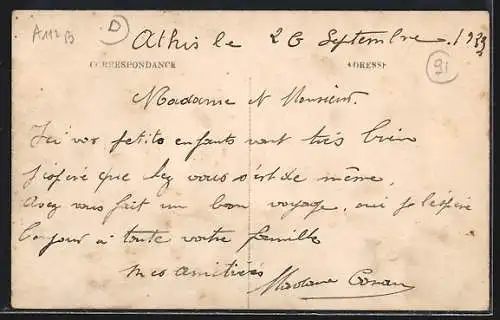 A112B D Athis le 26 Septembre 1933
CORRESPONDANCE ADRESSE
91
Madame & Monsieur.
Ici vos petits enfants vont très bien
J'espère que chez vous s'est de même,
Avez vous fait un bon voyage, oui je l'éspère
Bonjour a toute votre famille
Mes amitiés
Madame Conan